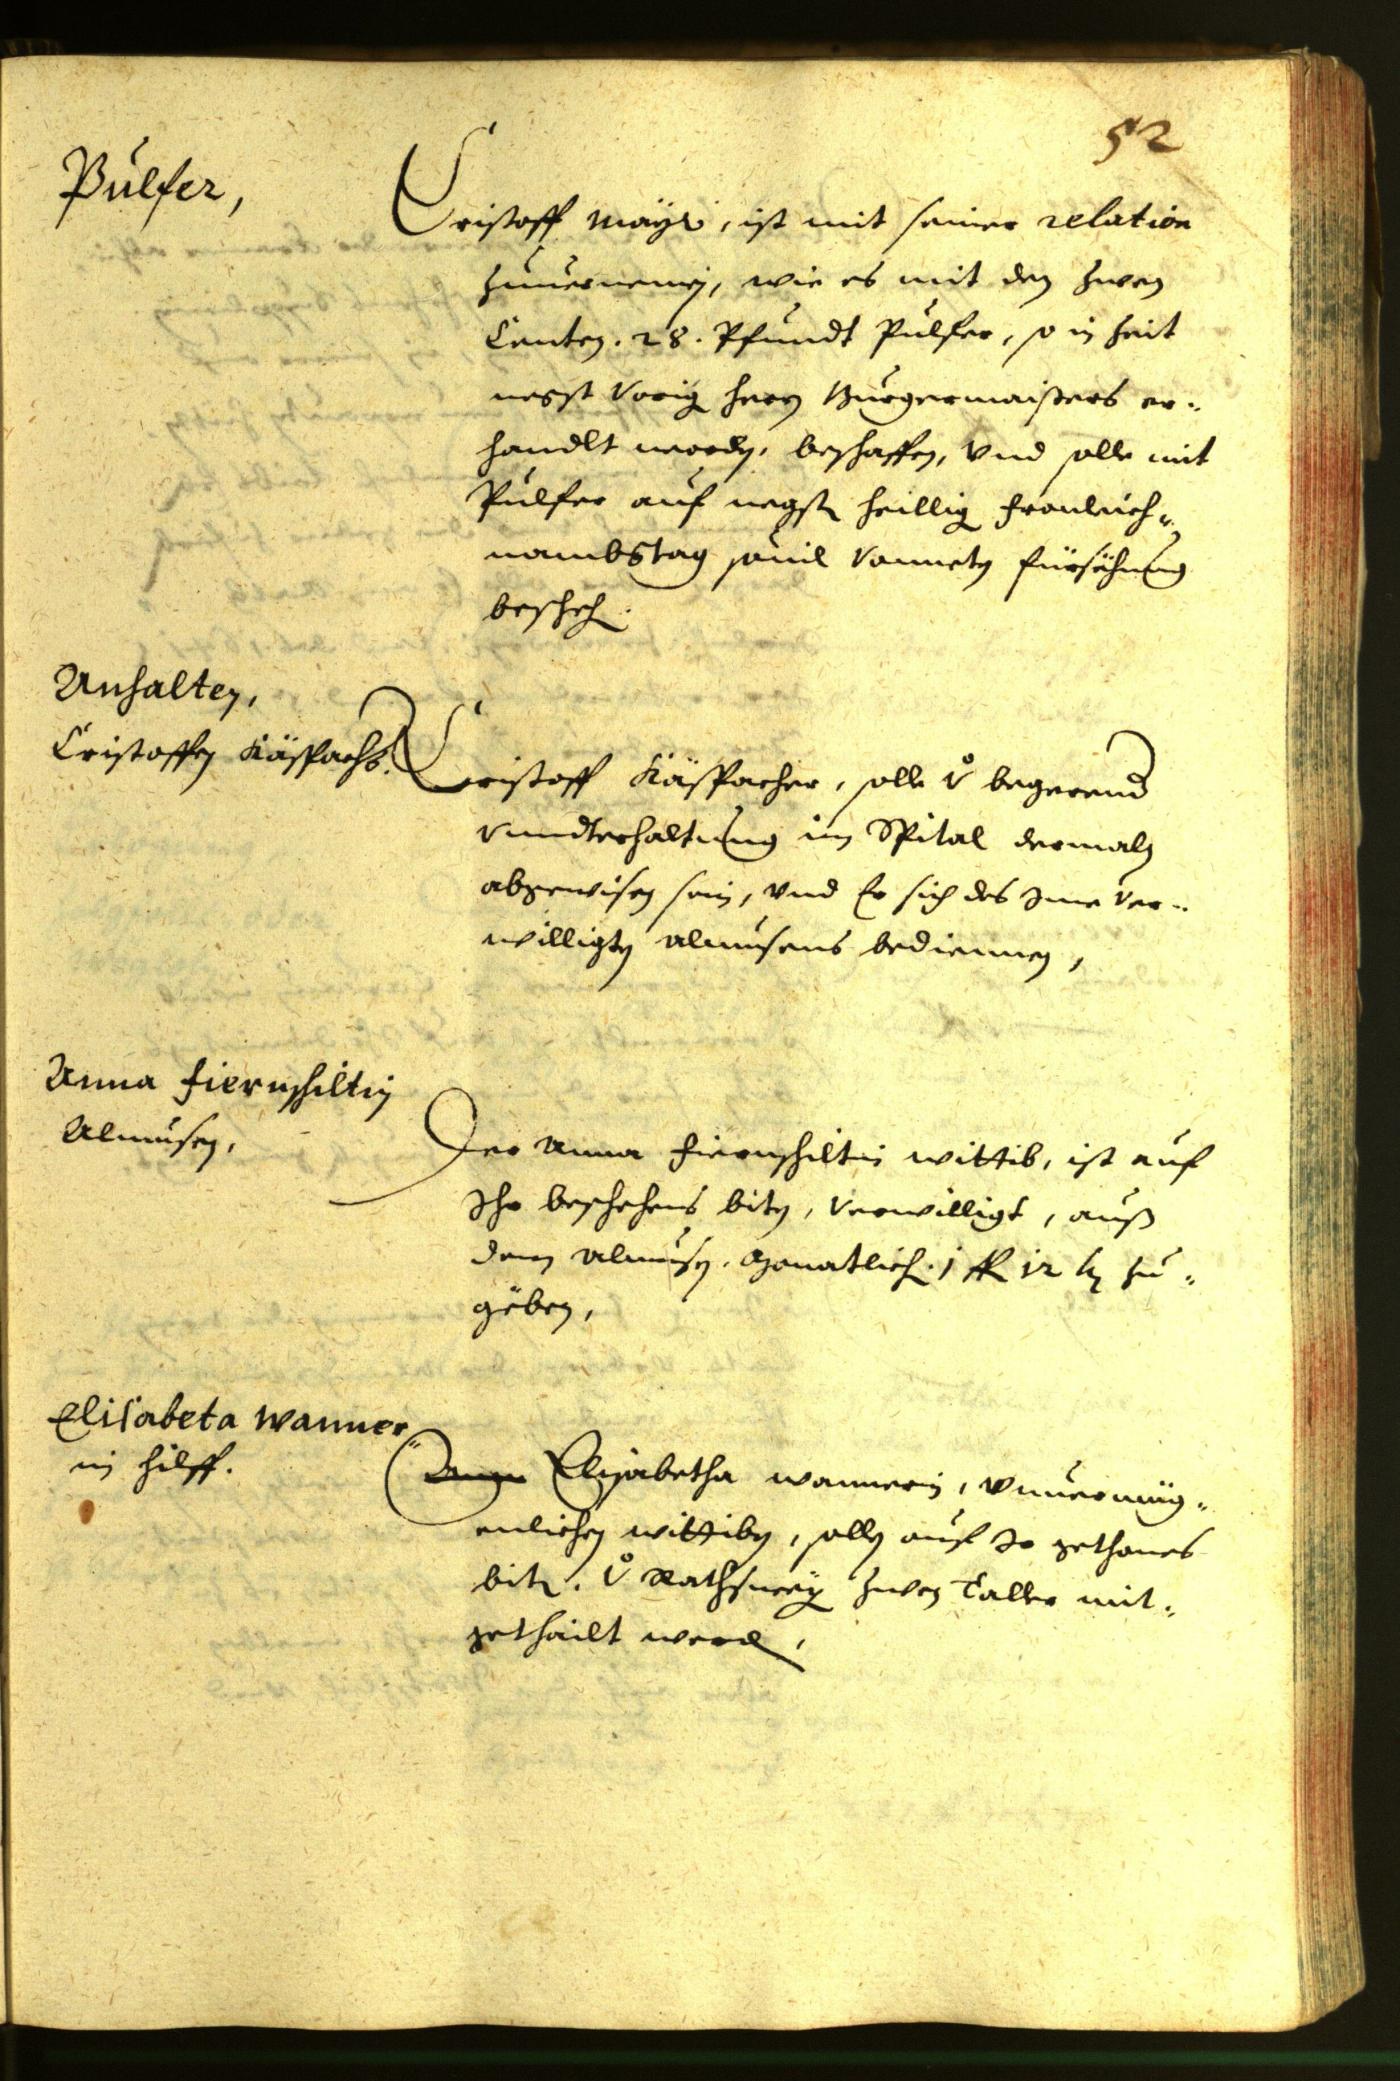 52
Pulfer,
Cristoff Mayr, ist mit seiner relation
zuuernemen, wie es mit den zwen
Centen. 28. Pfundt Pulfer, so in Zeit
negst vorig herrn Burgermaisters er-
handlt worden, beschaffen, vnd solle mit
Pulfer auf negst heillig Fronleich-
nambstag souil vonneten fürsehung
beschehen.
Anhalten,
Cristoffen Käspachers.
Cristoff Käspacher, solle v̊ begerend
vnndterhaltung im Spital dermaln
abgewisen sein, vnd Er sich des Ime ver-
willigten almusens bediennen,
Anna Fiernschiltin
Almusen,
Der Anna Fiernschiltin wittib, ist auf
Ihr beschehens biten, verwilligt, auß
dem Almusen. Monatlich. 1 fl 12 kr zu-
geben,
Elisabeta Wanner
in hilff.
Elisabetha Wannerin, vnuermüg-
enlichen wittiben, sollen auf Ir gethanes
biten. v̊ Rathswegen zwen Taller mit-
gethailt werden,